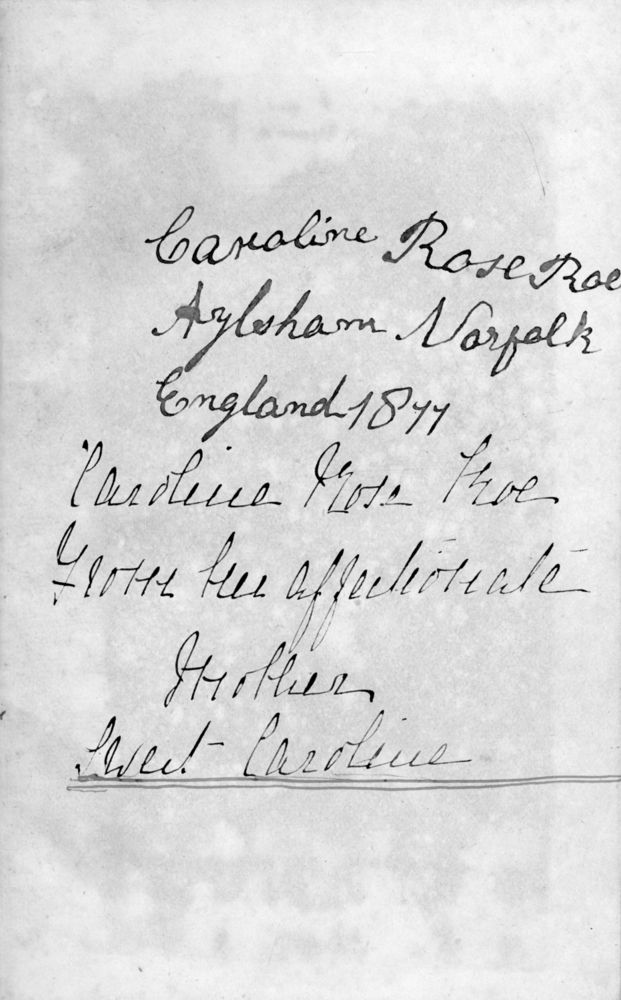 Caroline Rose Roe
Aylsham Norfolk
England 1877
Caroline Rose Roe
From her affectionate
Mother
Sweet Caroline